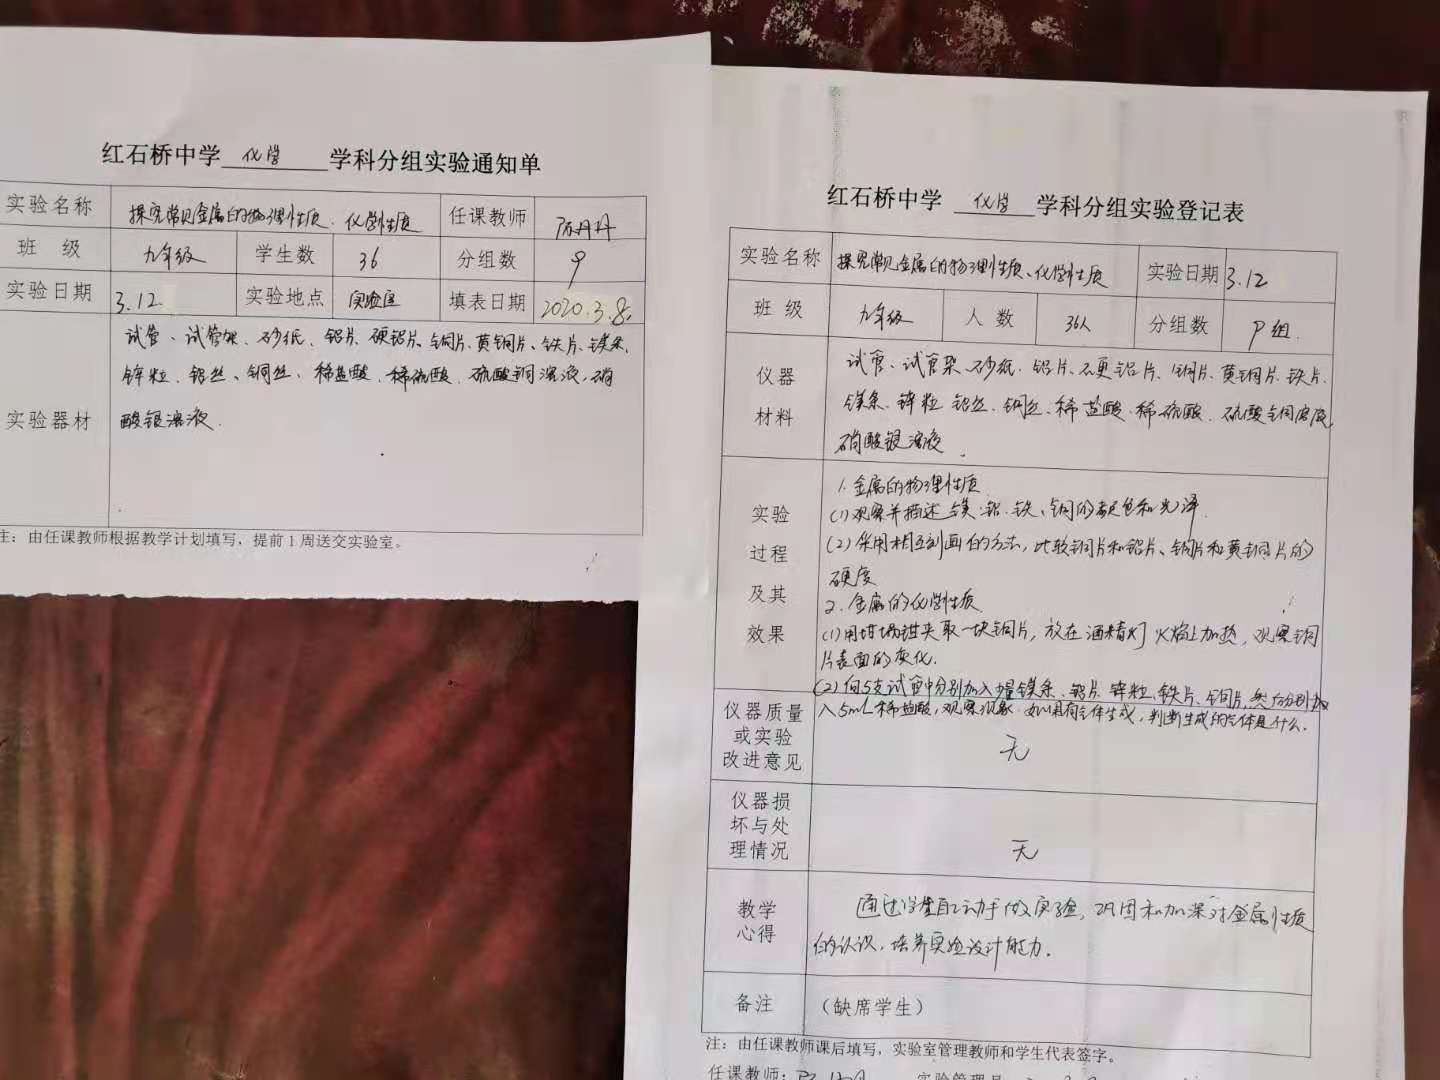 红石桥中学 化学 学科分组实验通知单
实验名称 探究常见金属的物理性质、化学性质 任课教师 陈丹丹
班 级 九年级 学生数 36 分组数 9
实验日期 3.12 实验地点 实验室 填表日期 2020.3.8.
实验器材
试管、试管架、砂纸、铝片、硬铝片、铜片、黄铜片、铁片、镁条、
锌粒、铝丝、铜丝、稀盐酸、稀硫酸、硫酸铜溶液、硝
酸银溶液.
注：由任课教师根据教学计划填写，提前1周送交实验室。
红石桥中学 化学 学科分组实验登记表
实验名称 探究常见金属的物理性质、化学性质 实验日期 3.12
班 级 九年级 人 数 36人 分组数 9组
仪器
材料
试管、试管架、砂纸、铝片、硬铝片、铜片、黄铜片、铁片、
镁条、锌粒、铝丝、铜丝、稀盐酸、稀硫酸、硫酸铜溶液,
硝酸银溶液.
实验
过程
及其
效果
1.金属的物理性质
(1)观察并描述镁、铝、铁、铜的颜色和光泽.
(2)采用相互刻画的方法，比较铜片和铝片、铜片和黄铜片的
硬度
2.金属的化学性质
(1)用坩埚钳夹取一块铜片，放在酒精灯火焰上加热，观察铜
片表面的变化.
(2)向5支试管中分别加入少量镁条、铝片、锌粒、铁片、铜片,然后分别加
入5mL稀盐酸,观察现象.如果有气体生成，判断生成的气体是什么.
仪器质量
或实验
改进意见
无
仪器损
坏与处
理情况
无
教学
心得
通过学生自己动手做实验，巩固和加深对金属性质
的认识，培养实验设计能力.
备注 （缺席学生）
注：由任课教师课后填写，实验室管理教师和学生代表签字。
任课教师：